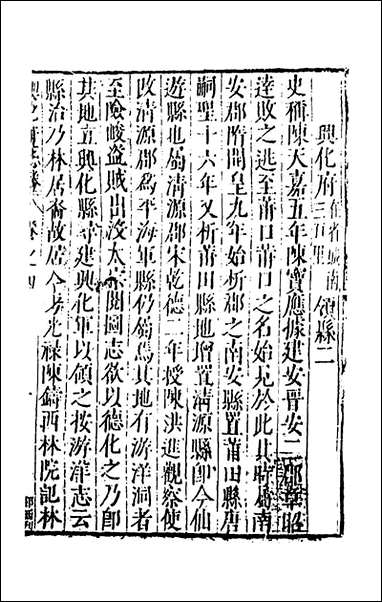 興化府在省城南三百里領縣二
史稱陳天嘉五年陳寶應據建安晉安二郡章昭
達敗之逃至莆口莆口之名始見於此其時屬南
安郡隋開皇九年始析郡之南安縣置莆田縣唐
嗣聖十六年又析莆田縣地增置清源縣卽今仙
遊縣也屬清源郡宋乾德二年授陳洪進觀察使
改清源郡爲平海軍縣仍屬焉其地有游洋洞者
至險峻盜賊出没太宗閱圖志欲以德化之乃卽
其地立興化縣尋建興化軍以領之按游洋志云
縣治乃林居裔故居今考光祿陳鑄西林院記林
卷之四